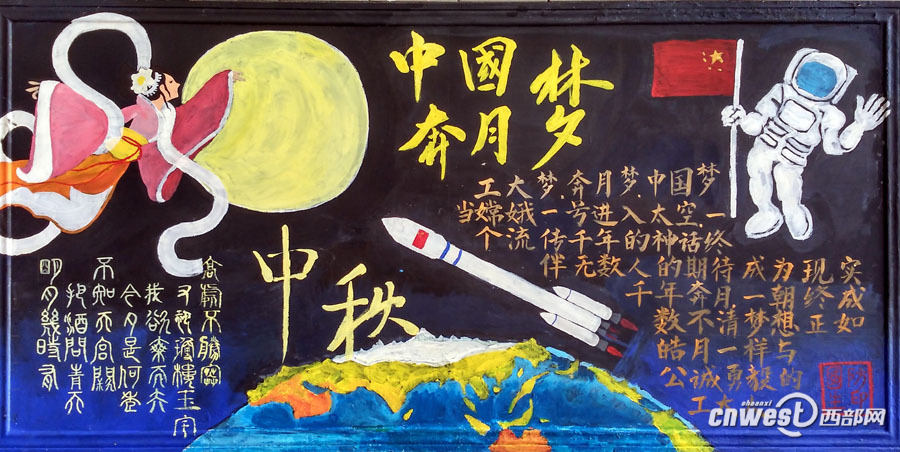 中國
奔月梦
工大梦.奔月梦.中国梦
当嫦娥一号进入太空一
个流传千年的神话终
伴无数人的期待成为现实
千年奔月一朝终成
数不清梦想正如
皓月一样与
公诚勇毅的
工大
中秋
明月幾時有
把酒問青天
不知天宮闕
今夕是何年
我欲乘
又恐瓊樓玉宇
高處不勝寒
shaanxi
cnwest西部网